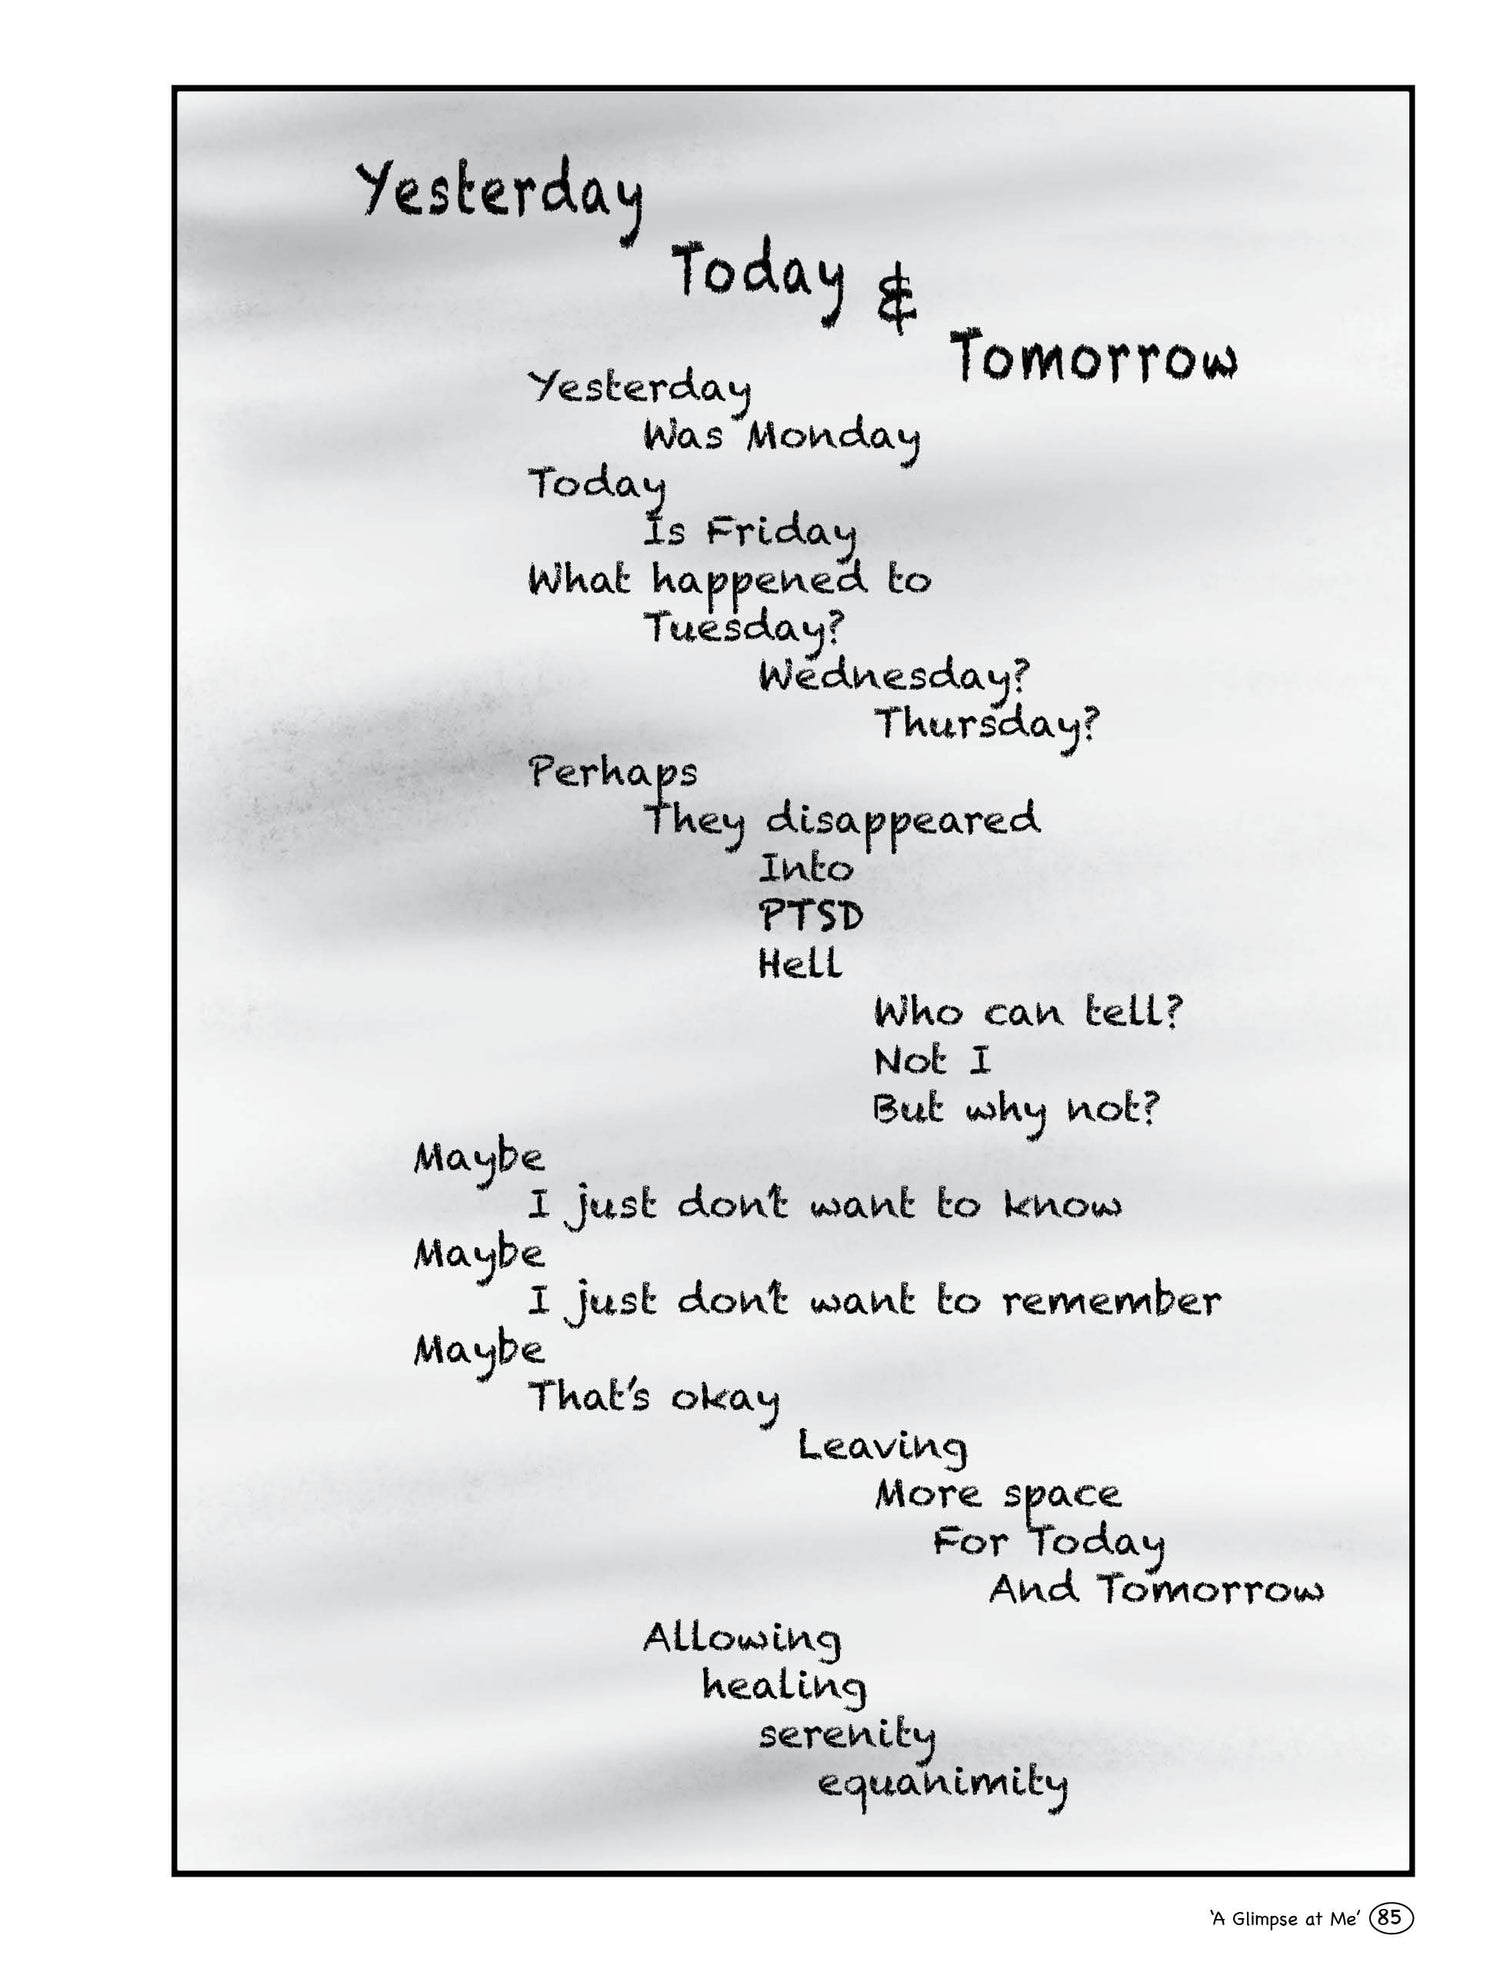 Yesterday
Today &
Tomorrow
Yesterday
Was Monday
Today
Is Friday
What happened to
Tuesday?
Wednesday?
Thursday?
Perhaps
They disappeared
Into
PTSD
Hell
Who can tell?
Not I
But why not?
Maybe
I just don't want to know
Maybe
I just don't want to remember
Maybe
That's okay
Leaving
More space
For Today
And Tomorrow
Allowing
healing
serenity
equanimity
'A Glimpse at Me' 85